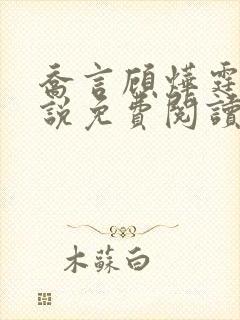 喬言顧燁霆
說免費閱讀
木蘇白